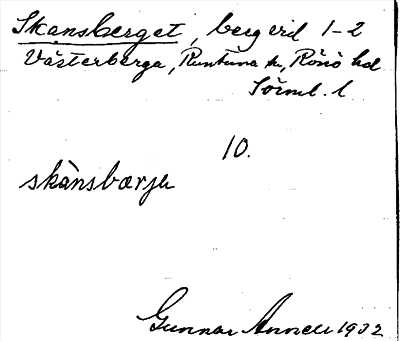 Skansberget, berg vid 1-2
Västerberga, Runtuna sn, Rönö hd
Sörml. l
10.
skànsbærjə
Gunnar Annell 1932